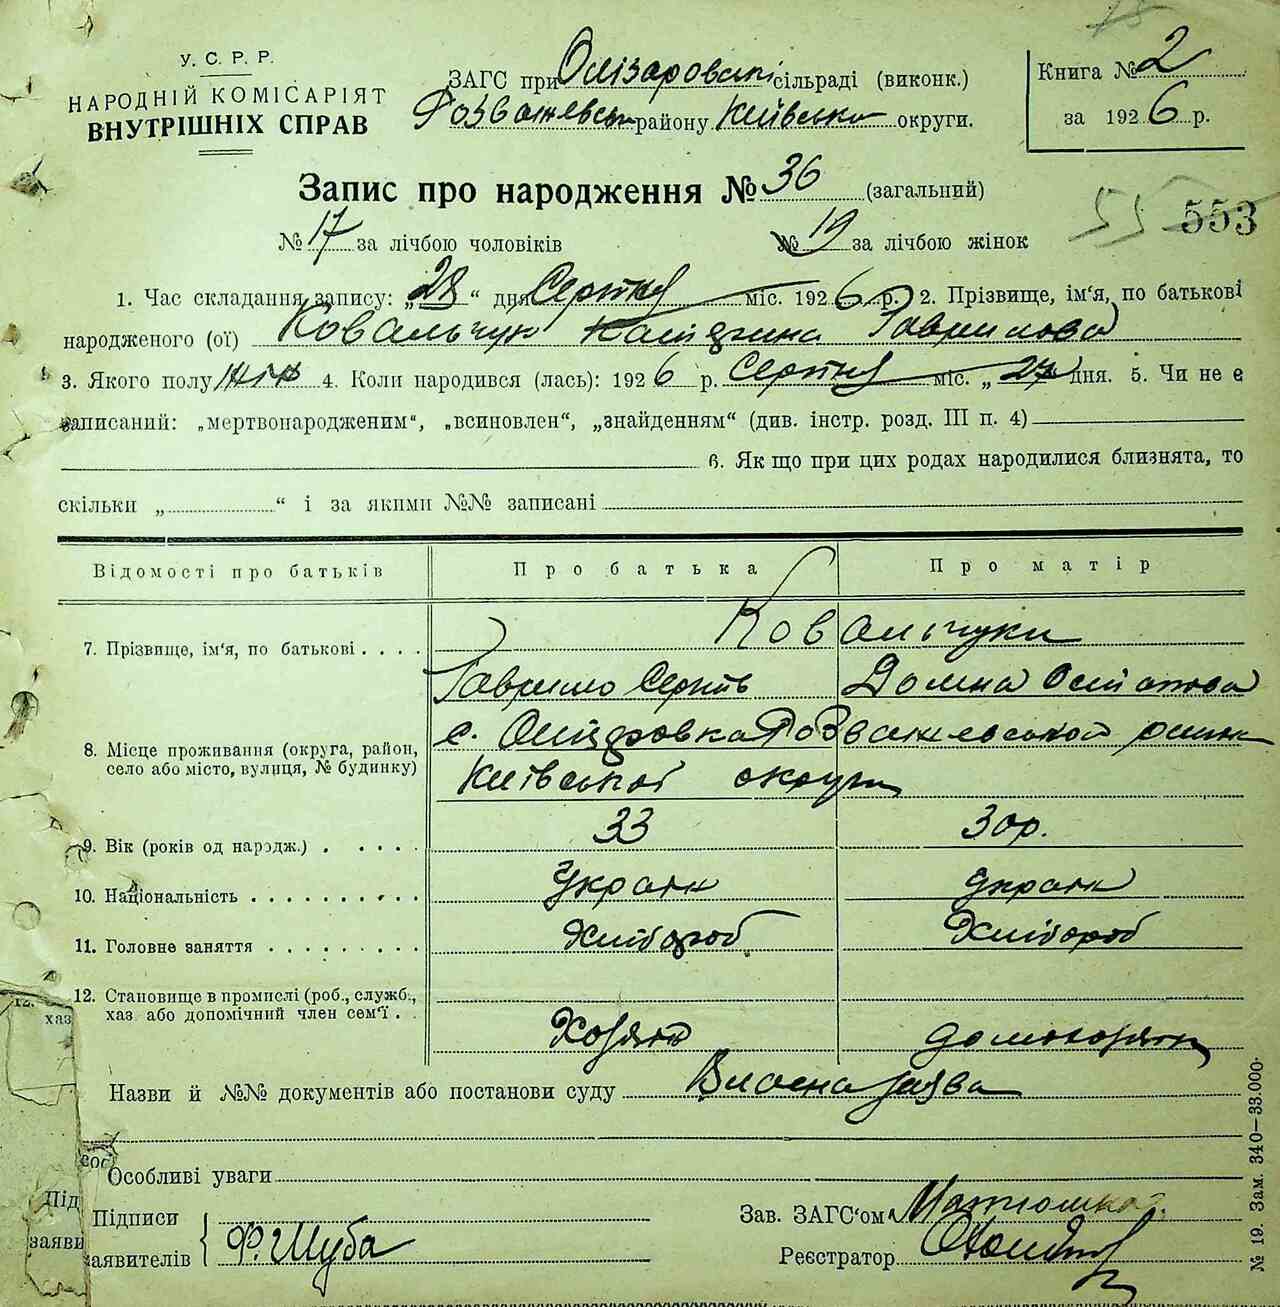 У. С. Р. Р.
НАРОДНІЙ КОМІСАРІЯТ
ВНУТРІШНІХ СПРАВ
ЗАГС при Олізаровській сільраді (виконк.)
Розважевськ району Київсько округи.
Книга № 2
за 1926 р.
Запис про народження № 36 (загальний)
№ 17 за лічбою чоловіків № 19 за лічбою жінок
55 553
1. Час складання запису: „28“ дня Серпня міс. 1926 р. 2. Прізвище, ім'я, по батькові
народженого (ої) Ковальчук Гаврилова
3. Якого полу жін 4. Коли народився (лась): 1926 р. Серпня міс. „27 дня. 5. Чи не є
записаний: „мертвонародженим“, „всиновлен“, „знайденням“ (див. інстр. розд. III п. 4)
6. Як що при цих родах народилися близнята, то
скільки „ “ і за якими №№ записані
Відомості про батьків Про батька Про матір
7. Прізвище, ім'я, по батькові . . . . Ковальчуки
Гаврило Домна Осипова
8. Місце проживання (округа, район, село або місто, вулиця, № будинку) с. Розважевської
Київської округи
9. Вік (років од народж.) . . . . . 33 30р.
10. Національність . . . . . . . . . . Україн Україн
11. Головне заняття . . . . . . . . . Хлібороб Хлібороб
12. Становище в промислі (роб., служб., хаз. або допомічний член сем'ї . . Хозяїн домохозяйк
Назви й №№ документів або постанови суду Власна заява
Особливі уваги
Підписи заявителів { Ф. Шуба
Зав. ЗАГС'ом
Реєстратор
№ 19. Зам. 340—33.000.
хаз
Під
заяви